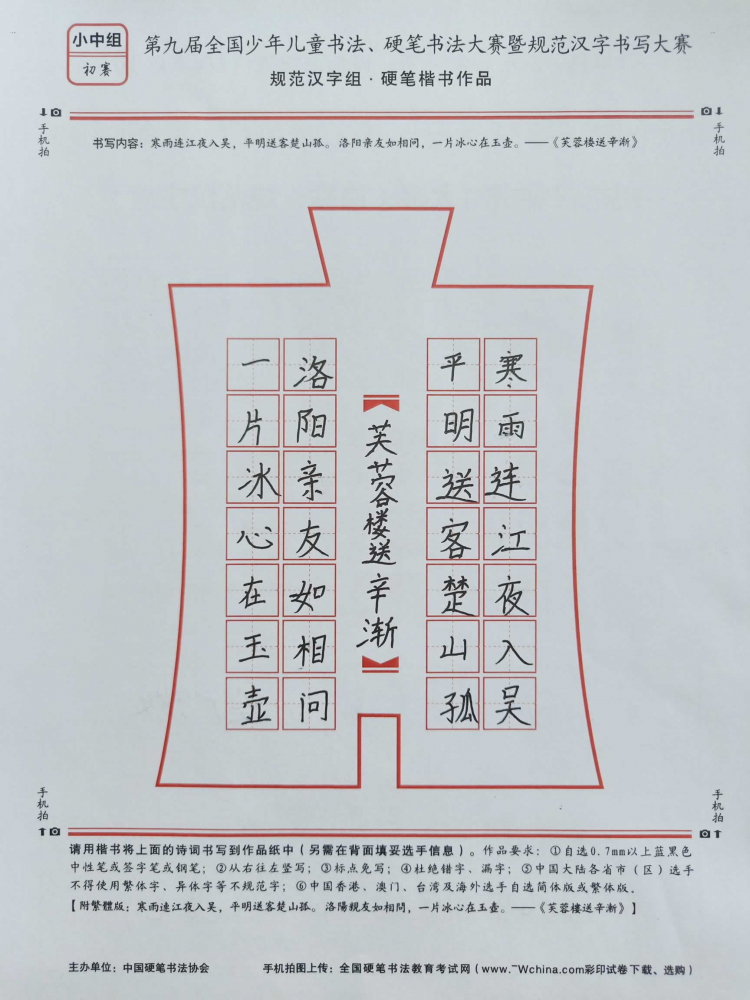 小中组
初赛
第九届全国少年儿童书法、硬笔书法大赛暨规范汉字书写大赛
规范汉字组·硬笔楷书作品
手机拍
手机拍
书写内容：寒雨连江夜入吴，平明送客楚山孤。洛阳亲友如相问，一片冰心在玉壶。——《芙蓉楼送辛渐》
寒雨连江夜入吴
平明送客楚山孤
《芙蓉楼送辛渐》
洛阳亲友如相问
一片冰心在玉壶
手机拍
手机拍
请用楷书将上面的诗词书写到作品纸中（另需在背面填妥选手信息）。作品要求：①自选0.7mm以上蓝黑色
中性笔或签字笔或钢笔；②从右往左竖写；③标点免写；④杜绝错字、漏字；⑤中国大陆各省市（区）选手
不得使用繁体字、异体字等不规范字；⑥中国香港、澳门、台湾及海外选手自选简体版或繁体版。
【附繁體版：寒雨连江夜入吴，平明送客楚山孤。洛陽親友如相問，一片冰心在玉壶。——《芙蓉樓送辛渐》】
主办单位：中国硬笔书法协会
手机拍图上传：全国硬笔书法教育考试网（www.Wchina.com彩印试卷下载、选购）